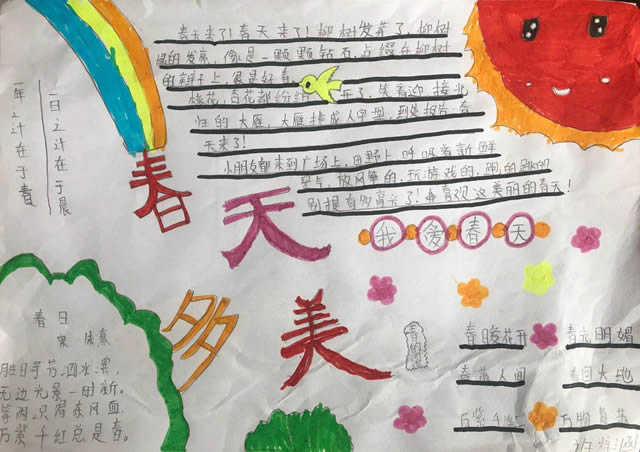 春天来了！春天来了！柳树发芽了，柳树
绿的发亮，像是一颗颗钻石，点缀在柳树
的辫子上，很是好看。
桃花，杏花都纷纷开了，笑着迎接北
归的大雁，大雁排成人字型，到处报告：春
天来了！
小朋友都来到广场上，田野上呼吸着新鲜
空气，放风筝的，玩游戏的，闹的跳的
别提有多高兴了！我喜欢这美丽的春天！
一日之计在于晨
一年之计在于春
春天多美
我爱春天
春日
宋 朱熹
胜日寻芳泗水滨，
无边光景一时新。
等闲识得东风面，
万紫千红总是春。
春暖花开
春光明媚
春满人间
春回大地
万紫千红